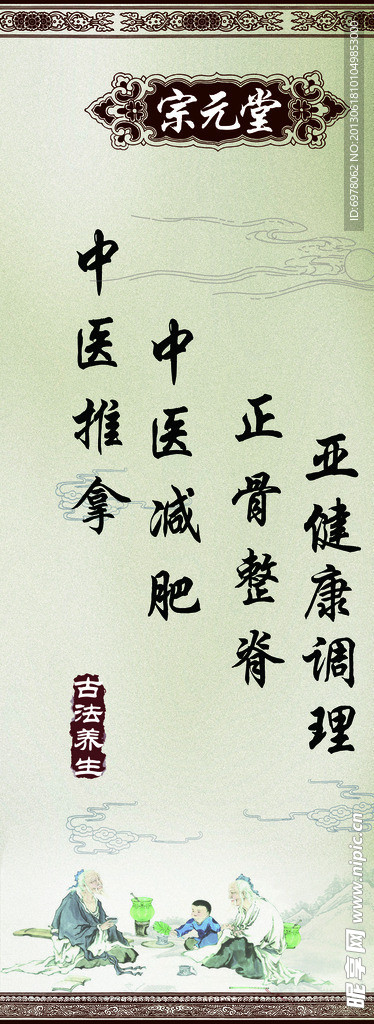 宗元堂
中医推拿
中医减肥
正骨整脊
亚健康调理
古法养生
ID:6978062 NO:20130618101049853000
昵享网 www.nipic.cn